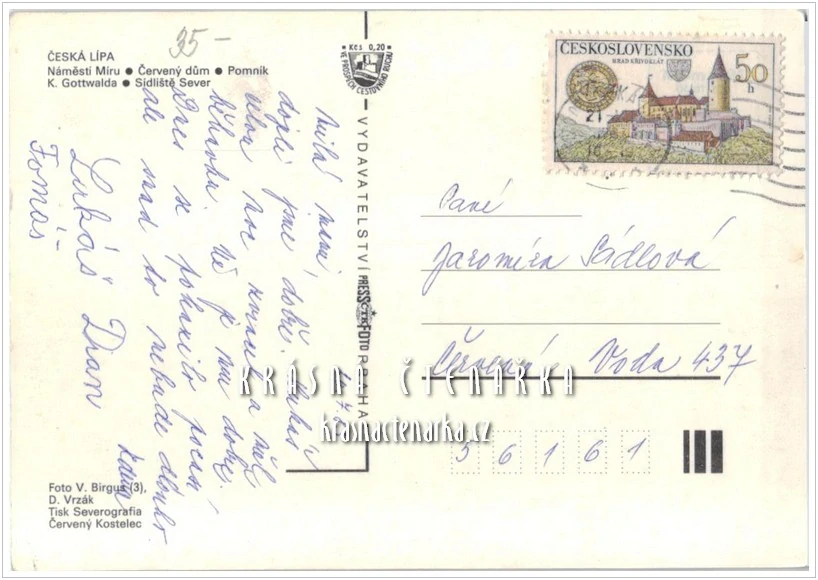 35-
ČESKÁ LÍPA
Náměstí Míru ● Červený dům ● Pomník
K. Gottwalda ● Sídliště Sever
Kčs 0,20
VE PROSPĚCH CESTOVNÍHO RUCHU
VYDAVATELSTVÍ PRESSFOTO PRAHA
ČTK
ČESKOSLOVENSKO
HRAD KŘIVOKLÁT
50
h
21
Milá
dojeli jsme dobře. Lukáš
noc zvracel a měl
Už je mu dobře.
Dnes se pokazilo počasí
ale snad to nebude dlouho.
Lukáš Dian
Tomáš
Paní
Jaromíra Sádlová
Červená Voda 437
56161
KRÁSNÁ ČTENÁŘKA
krasnactenarka.cz
Foto V. Birgus (3),
D. Vrzák
Tisk Severografia
Červený Kostelec